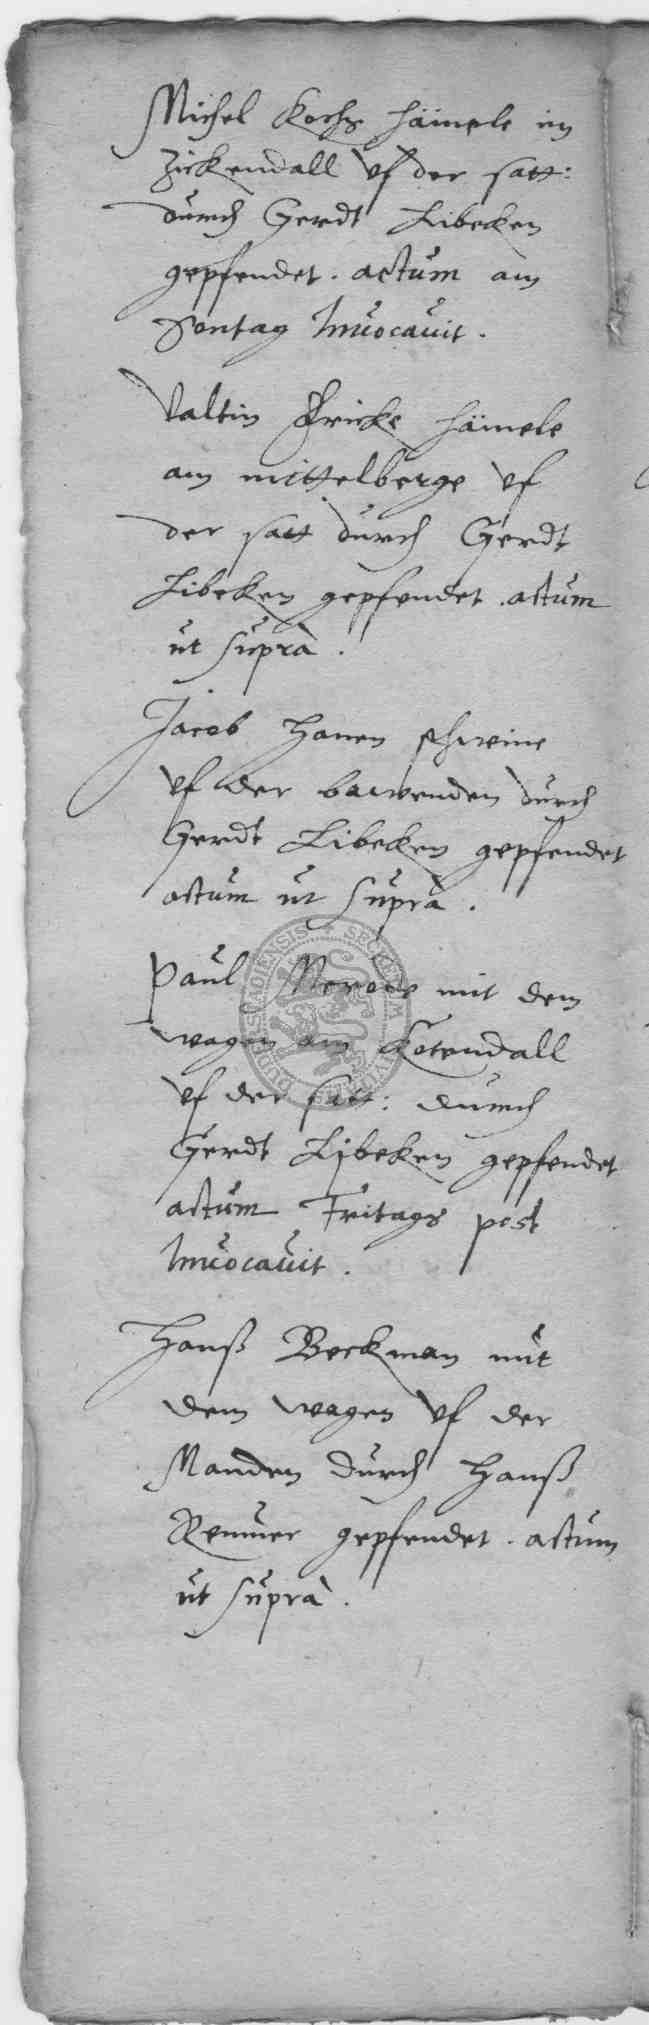 Michel Kochs hämele im
Zickendall vf der satt:
durch Gerdt Libeken
gepfendet. actum am
Sontag Inuocauit.
Valtin Fricke hämele
am mittelberge vf
der satt durch Gerdt
Libeken gepfendet. actum
ut supra.
Jacob Hanen schweine
vf der durch
Gerdt Libeken gepfendet
actum ut supra.
Paul mit dem
wagen am Kotendall
vf der satt: durch
Gerdt Libeken gepfendet
actum Fritags post
Inuocauit.
Hanß Beckman mit
dem wagen vf der
durch Hanß
gepfendet. actum
ut supra.
SECRETVM CIVITATIS DUDERSTADIENSIS